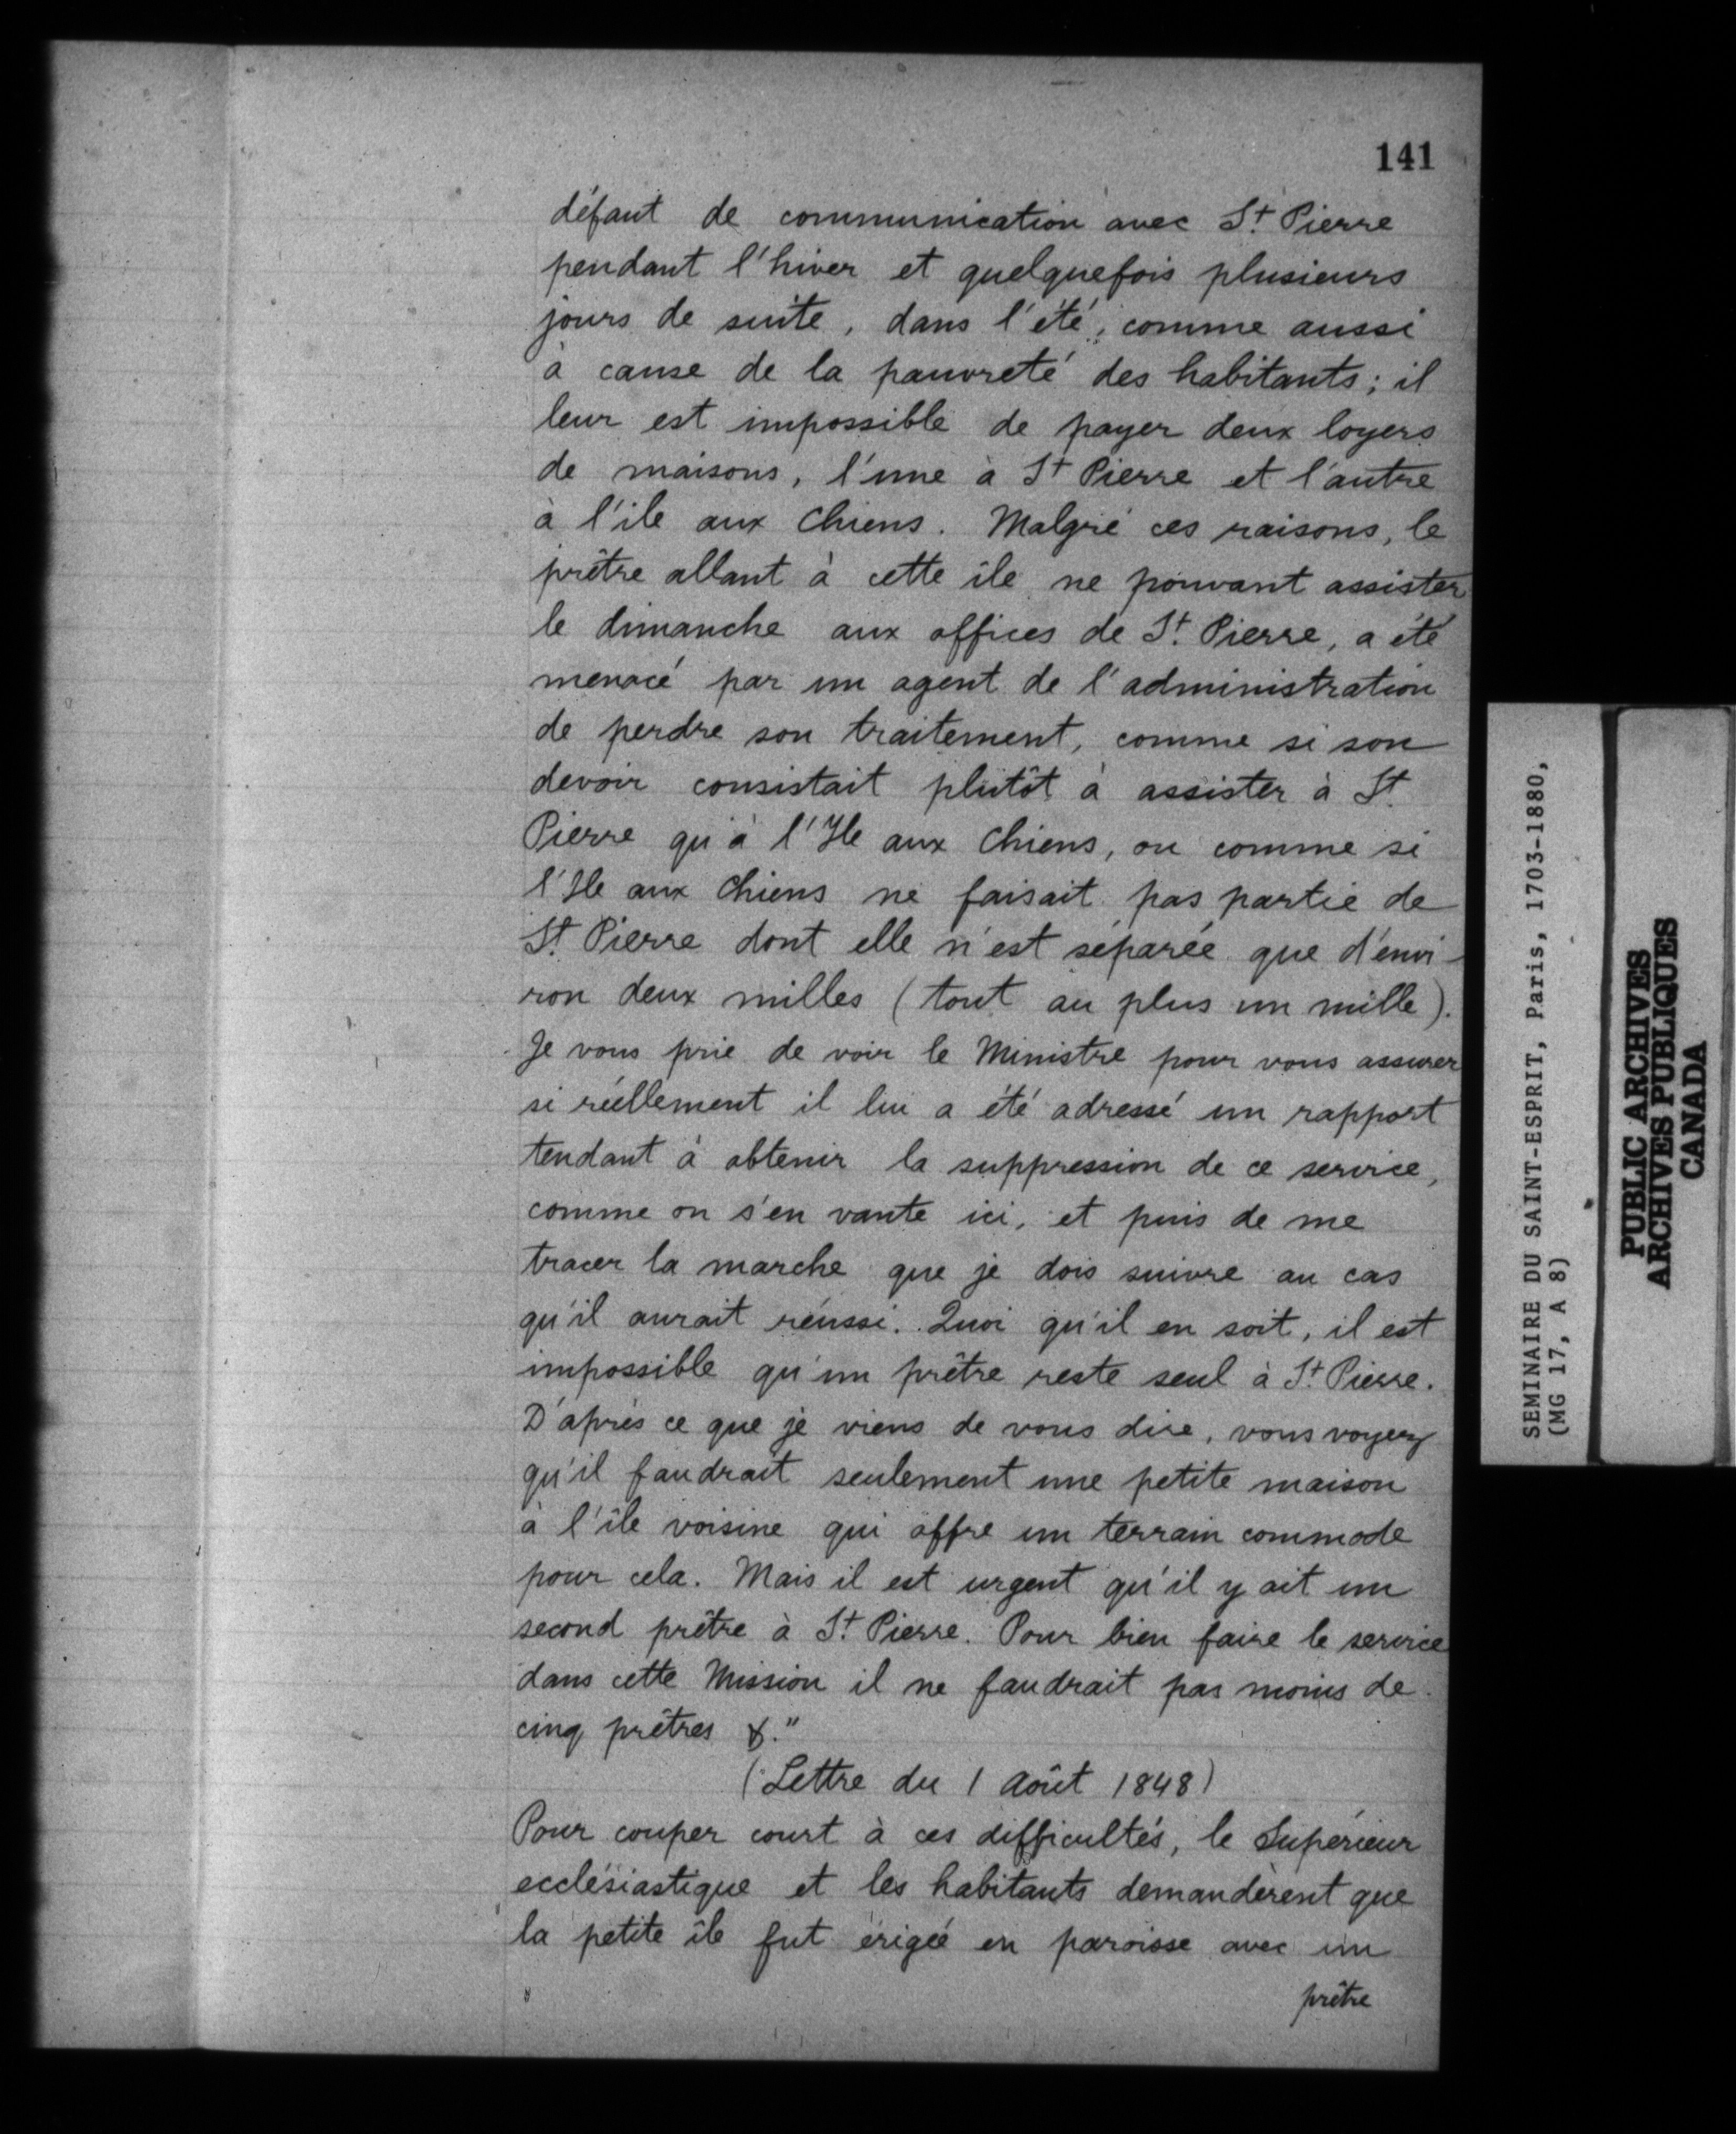 141
défaut de communication avec St. Pierre
pendant l'hiver et quelquefois plusieurs
jours de suite, dans l'été, comme aussi
à cause de la pauvreté des habitants; il
leur est impossible de payer deux loyers
de maisons, l'une à St Pierre et l'autre
à l'ile aux Chiens. Malgré ces raisons, le
prêtre allant à cette île ne pouvant assister
le dimanche aux offices de St. Pierre, a été
menacé par un agent de l'administration
de perdre son traitement, comme si son
devoir consistait plutôt à assister à St.
Pierre qu'à l'Ile aux Chiens, ou comme si
l'Ile aux Chiens ne faisait pas partie de
St. Pierre dont elle n'est séparée que d'envi-
ron deux milles (tout au plus un mille).
Je vous prie de voir le Ministre pour vous assurer
si réellement il lui a été adressé un rapport
tendant à obtenir la suppression de ce service,
comme on s'en vante ici, et puis de me
tracer la marche que je dois suivre au cas
qu'il aurait réussi. Quoi qu'il en soit, il est
impossible qu'un prêtre reste seul à St. Pierre.
D'après ce que je viens de vous dire, vous voyez
qu'il faudrait seulement une petite maison
à l'île voisine qui offre un terrain commode
pour cela. Mais il est urgent qu'il y ait un
second prêtre à St. Pierre. Pour bien faire le service
dans cette Mission il ne faudrait pas moins de
cinq prêtres &."
(Lettre du 1 Août 1848)
Pour couper court à ces difficultés, le Supérieur
ecclésiastique et les habitants demandèrent que
la petite île fut érigée en paroisse avec un
prêtre
SEMINAIRE DU SAINT-ESPRIT, Paris, 1703-1880,
(MG 17, A 8)
PUBLIC ARCHIVES
ARCHIVES PUBLIQUES
CANADA